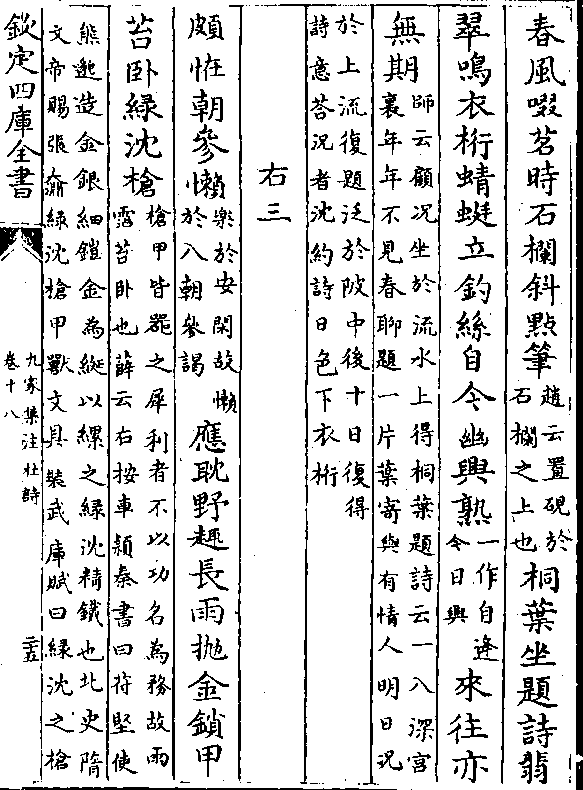 春風啜茗時石欄斜點筆趙云置硯於石欄之上也桐葉坐題詩翡
翠鳴衣桁蜻蜓立釣絲自今幽興熟一作自逢今日興來往亦
無期師云顧况坐於流水上得桐葉題詩云一入深宮裏年年不見春聊題一片葉寄與有情人明日况
於上流復題泛於波中後十日復得詩意荅况者沈約詩日色下衣桁
右三
頗怪朝參懶樂於安閑故懶於入朝參謁應耽野趣長雨抛金鎖甲
苔卧緑沈槍槍甲皆器之犀利者不以功名為務故雨霑苔卧也薛云右按車頻秦書曰苻堅使
熊邈造金銀細鎧金為綖以縲之緑沈精鐵也北史隋文帝賜張奫緑沈槍甲獸文具裝武庫賦曰緑沈之槍
欽定四庫全書
九家集注杜詩
卷十八
二五